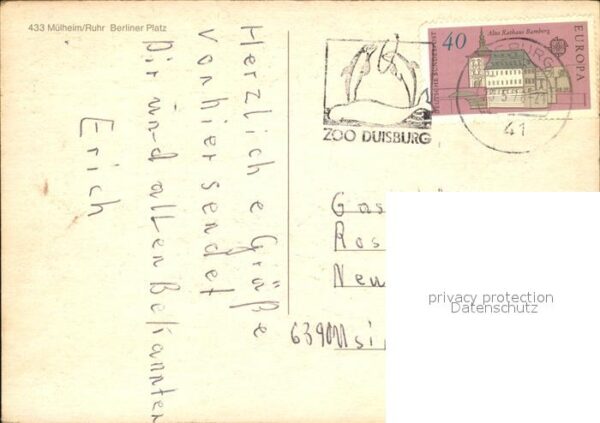 433 Mülheim/Ruhr Berliner Platz
Herzliche Grüße
von hier sendet
Dir und allen Bekannten
Erich
ZOO DUISBURG
40
Altes Rathaus Bamberg
EUROPA
DEUTSCHE BUNDESPOST
41
Gas
Ros
Neu
6390 Usi
privacy protection
Datenschutz